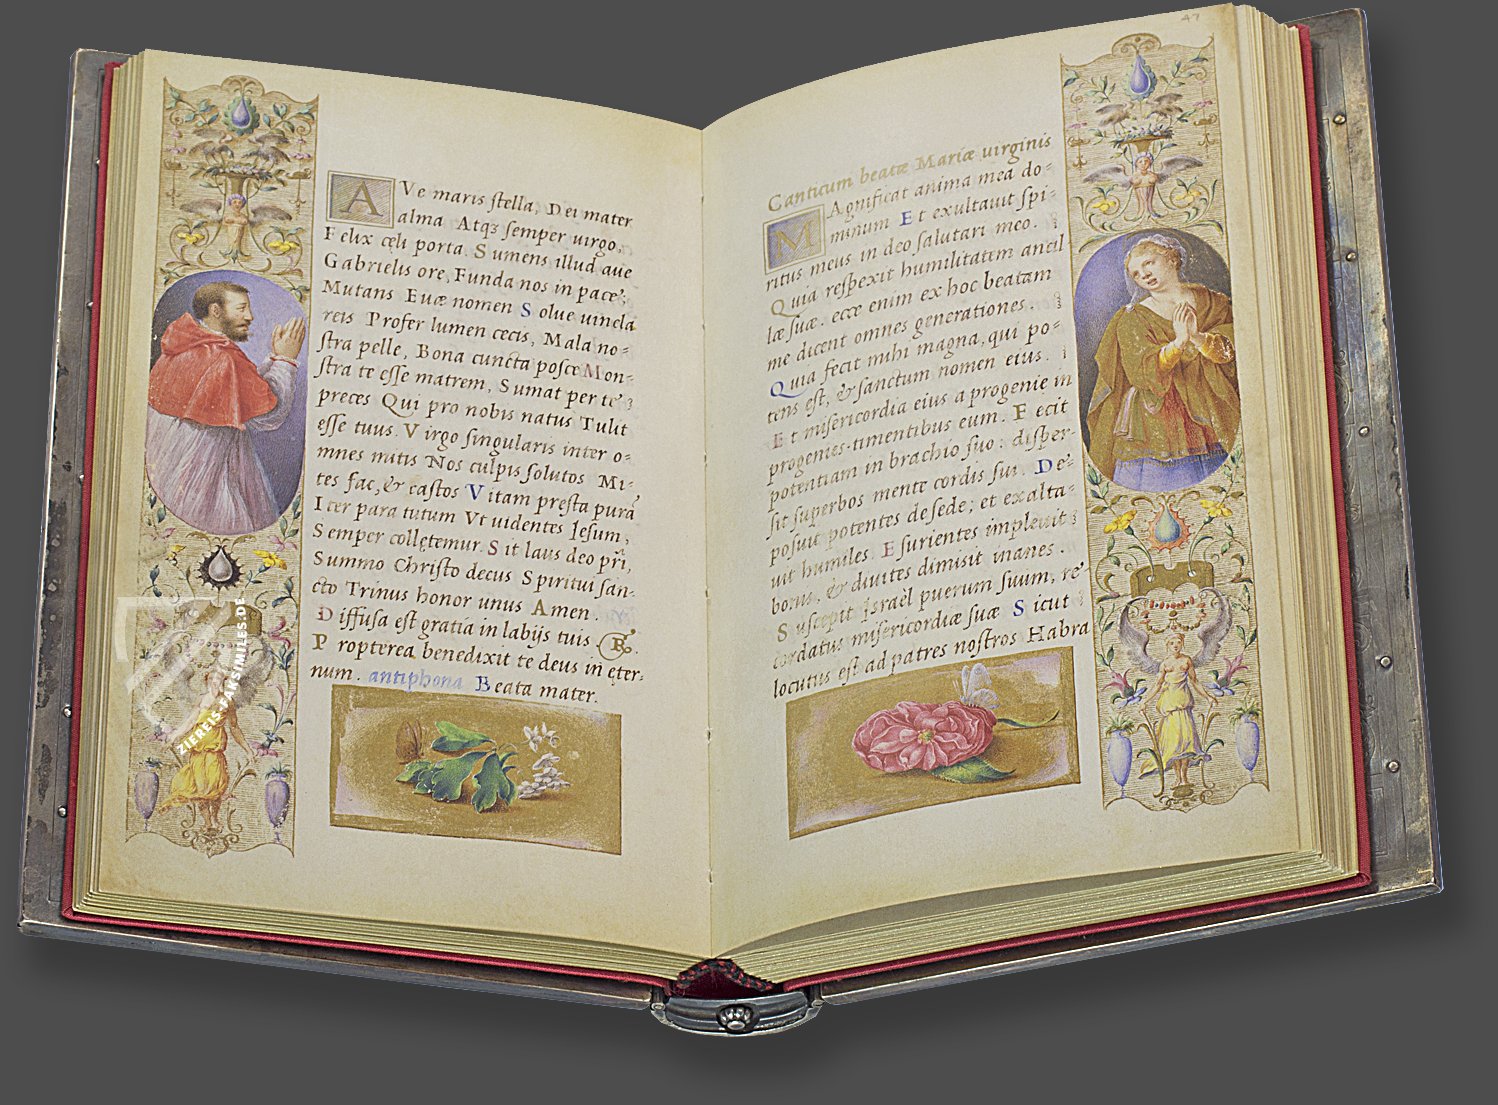 AVe maris stella, Dei mater
alma Atqꝫ semper uirgo,
Felix cęli porta. Sumens illud aue
Gabrielis ore, Funda nos in pace,
Mutans Euæ nomen Solue uincla
reis Profer lumen cecis, Mala no-
stra pelle, Bona cuncta posce Mon-
stra te esse matrem, Sumat per te
preces Qui pro nobis natus Tulit
esse tuus. Virgo singularis inter o-
mnes mitis Nos culpis solutos Mi-
tes fac, & castos Vitam pręsta purā
Iter para tutum Vt uidentes Iesum,
Semper collętemur. Sit laus deo pr̄i,
Summo Christo decus Spiritui san-
cto Trinus honor unus Amen.
Diffusa est gratia in labijs tuis ℟.
Propterea benedixit te deus in ęter-
num. antiphona Beata mater.
47
Canticum beatæ Mariæ uirginis
MAgnificat anima mea do-
minum Et exultauit spi-
ritus meus in deo salutari meo.
Quia respexit humilitatem ancil
læ suæ. ecce enim ex hoc beatam
me dicent omnes generationes.
Quia fecit mihi magna, qui po-
tens est, & sanctum nomen eius.
Et misericordia eius a progenie in
progenies timentibus eum. Fecit
potentiam in brachio suo: disper-
sit superbos mente cordis sui. De-
posuit potentes de sede; et exalta-
uit humiles. Esurientes impleuit
bonis. & diuites dimisit inanes.
Suscepit Israël puerum suum, re-
cordatus misericordiæ suæ Sicut
locutus est ad patres nostros Habra
ZIEREIS-FAKSIMILES.DE